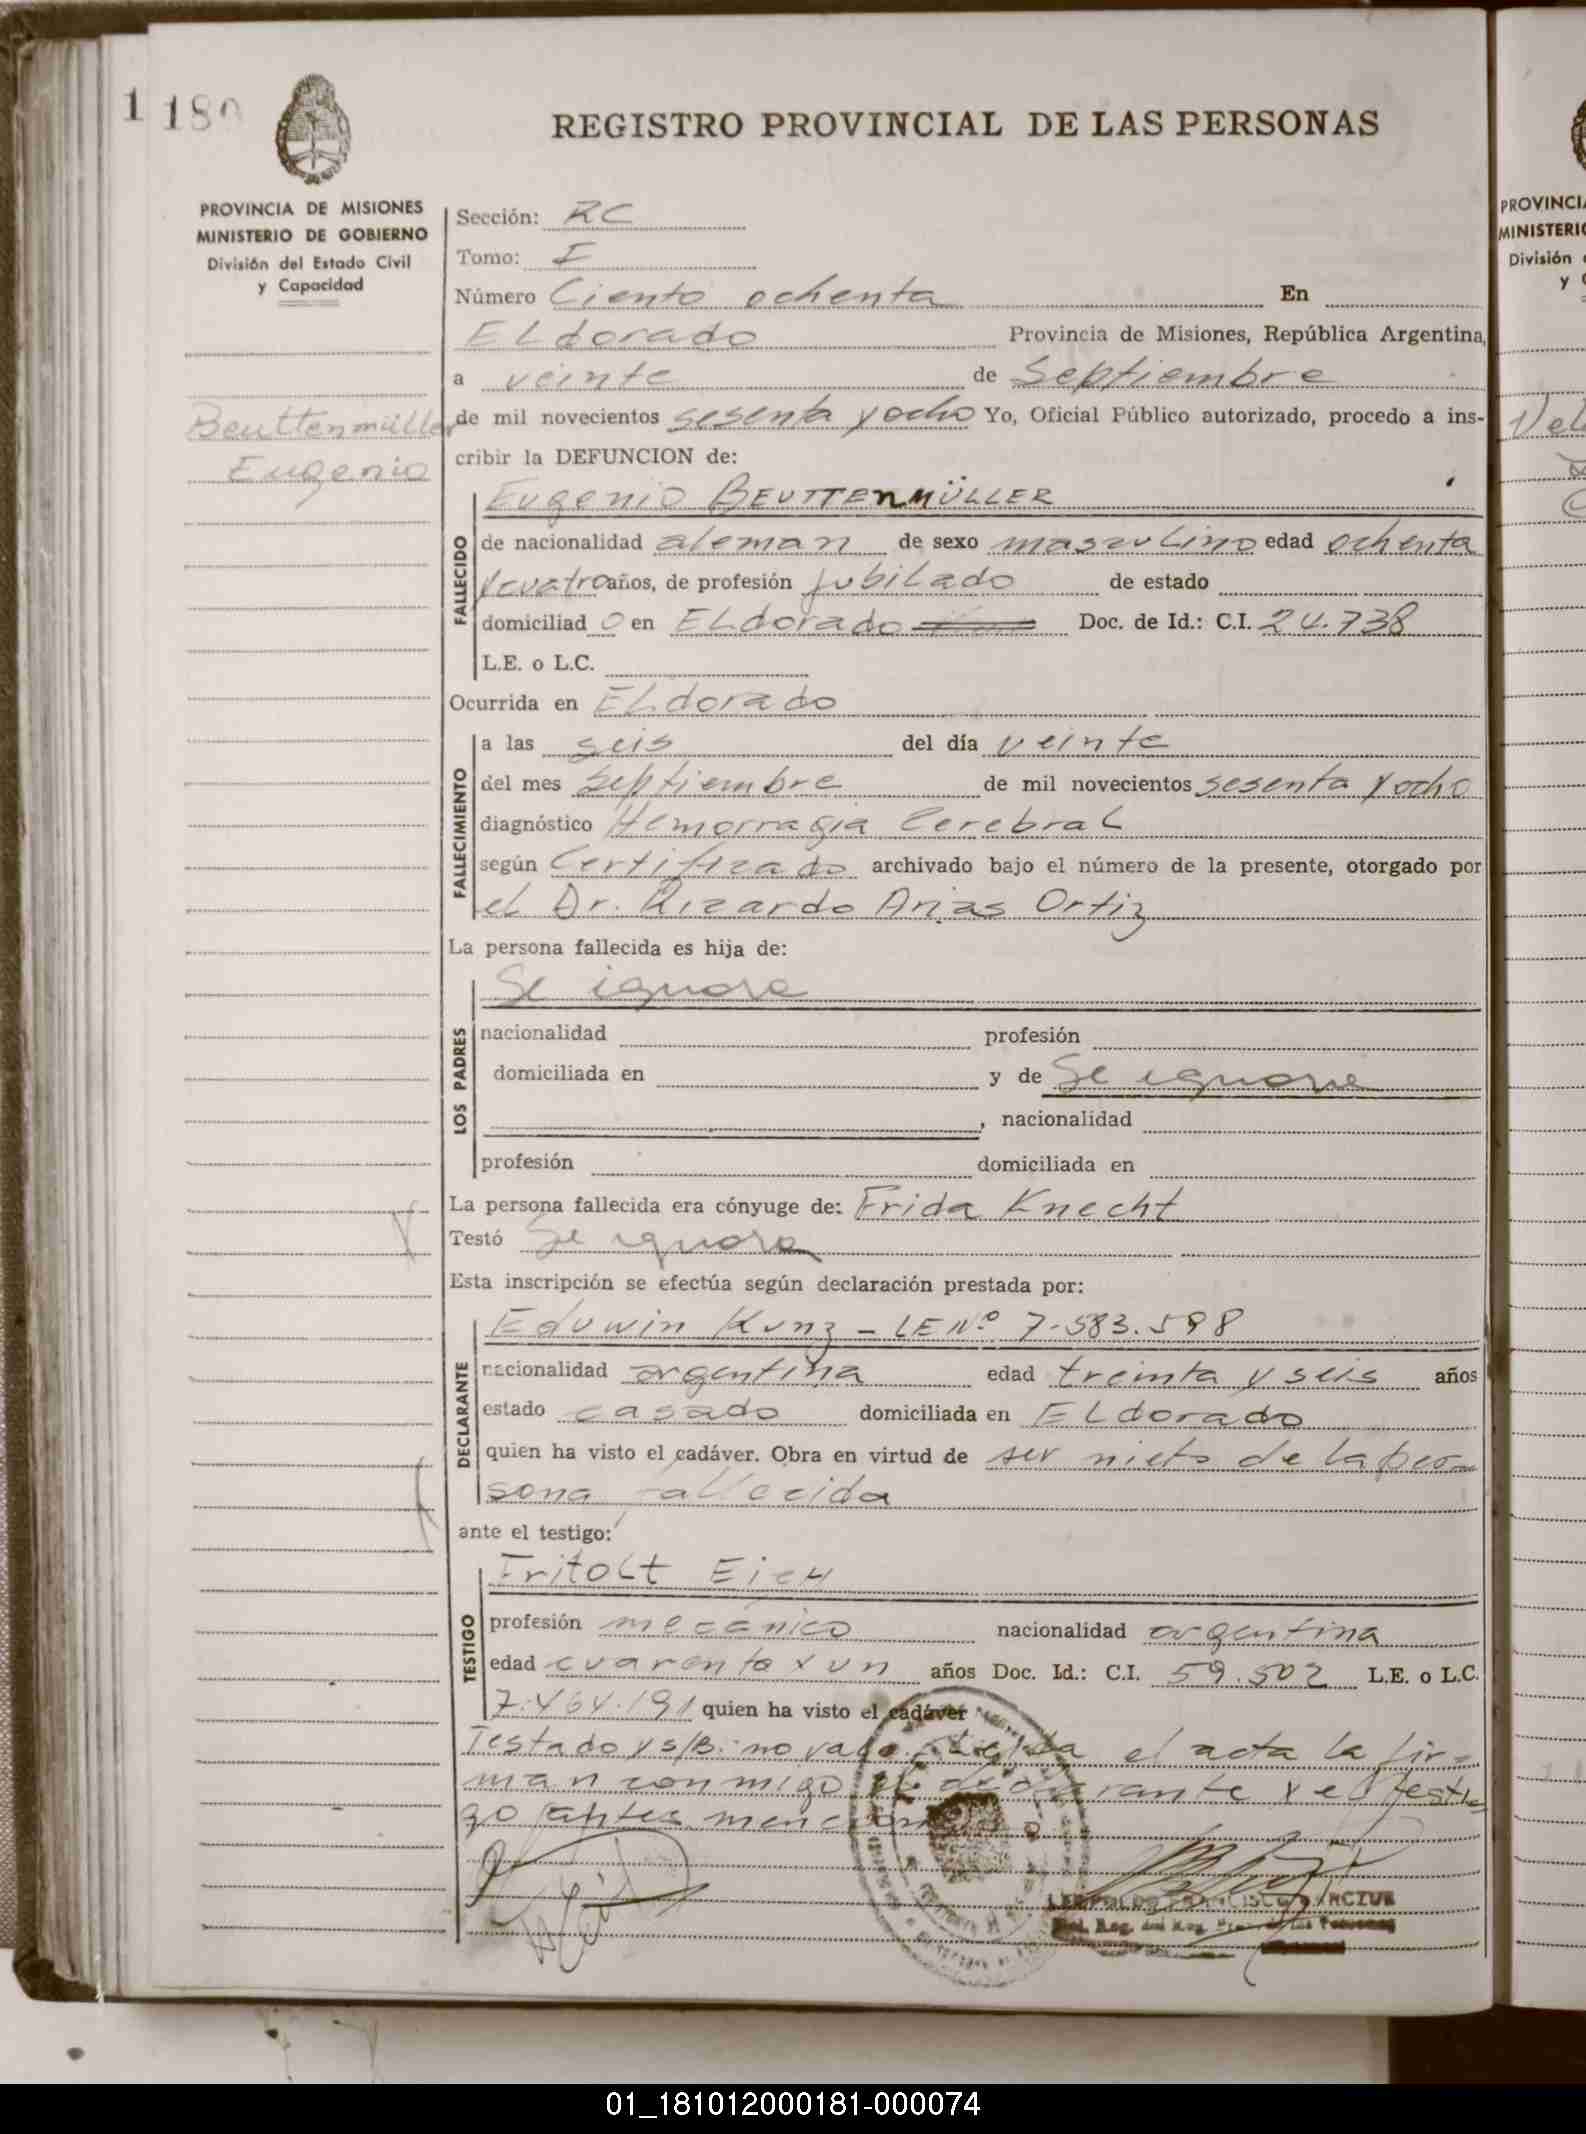 1 180
REGISTRO PROVINCIAL DE LAS PERSONAS
PROVINCIA DE MISIONES
MINISTERIO DE GOBIERNO
División del Estado Civil
y Capacidad
Beuttenmüller
Eugenio
Sección: RC
Tomo: I
Número Ciento ochenta En
ELdorado Provincia de Misiones, República Argentina,
a veinte de Septiembre
de mil novecientos sesenta y ocho Yo, Oficial Público autorizado, procedo a ins-
cribir la DEFUNCION de:
Eugenio BEUTTENMÜLLER
FALLECIDO
de nacionalidad aleman de sexo masculino edad ochenta
y cuatro años, de profesión jubilado de estado
domiciliad o en ELdorado Doc. de Id.: C.I. 24.738
L.E. o L.C.
Ocurrida en ELdorado
FALLECIMIENTO
a las seis del día veinte
del mes Septiembre de mil novecientos sesenta y ocho
diagnóstico Hemorragia Cerebral
según Certificado archivado bajo el número de la presente, otorgado por
el Dr. Ricardo Arias Ortiz
La persona fallecida es hija de:
LOS PADRES
Se ignora
nacionalidad profesión
domiciliada en y de Se ignora
, nacionalidad
profesión domiciliada en
La persona fallecida era cónyuge de: Frida Knecht
Testó Se ignora
Esta inscripción se efectúa según declaración prestada por:
DECLARANTE
Eduwin Kunz - LE Nº 7.583.598
nacionalidad argentina edad treinta y seis años
estado casado domiciliada en ELdorado
quien ha visto el cadáver. Obra en virtud de ser nieto de la per-
sona fallecida
ante el testigo:
TESTIGO
Fritolt Eich
profesión mecánico nacionalidad argentina
edad cuarenta y un años Doc. Id.: C.I. 59.502 L.E. o L.C.
7.464.191 quien ha visto el cadáver
Testado y s/B: no vale. Leída el acta la fir-
man conmigo el declarante y el testi-
go antes mencionado
PROVINCIA
MINISTERIO
División
y
01_181012000181-000074